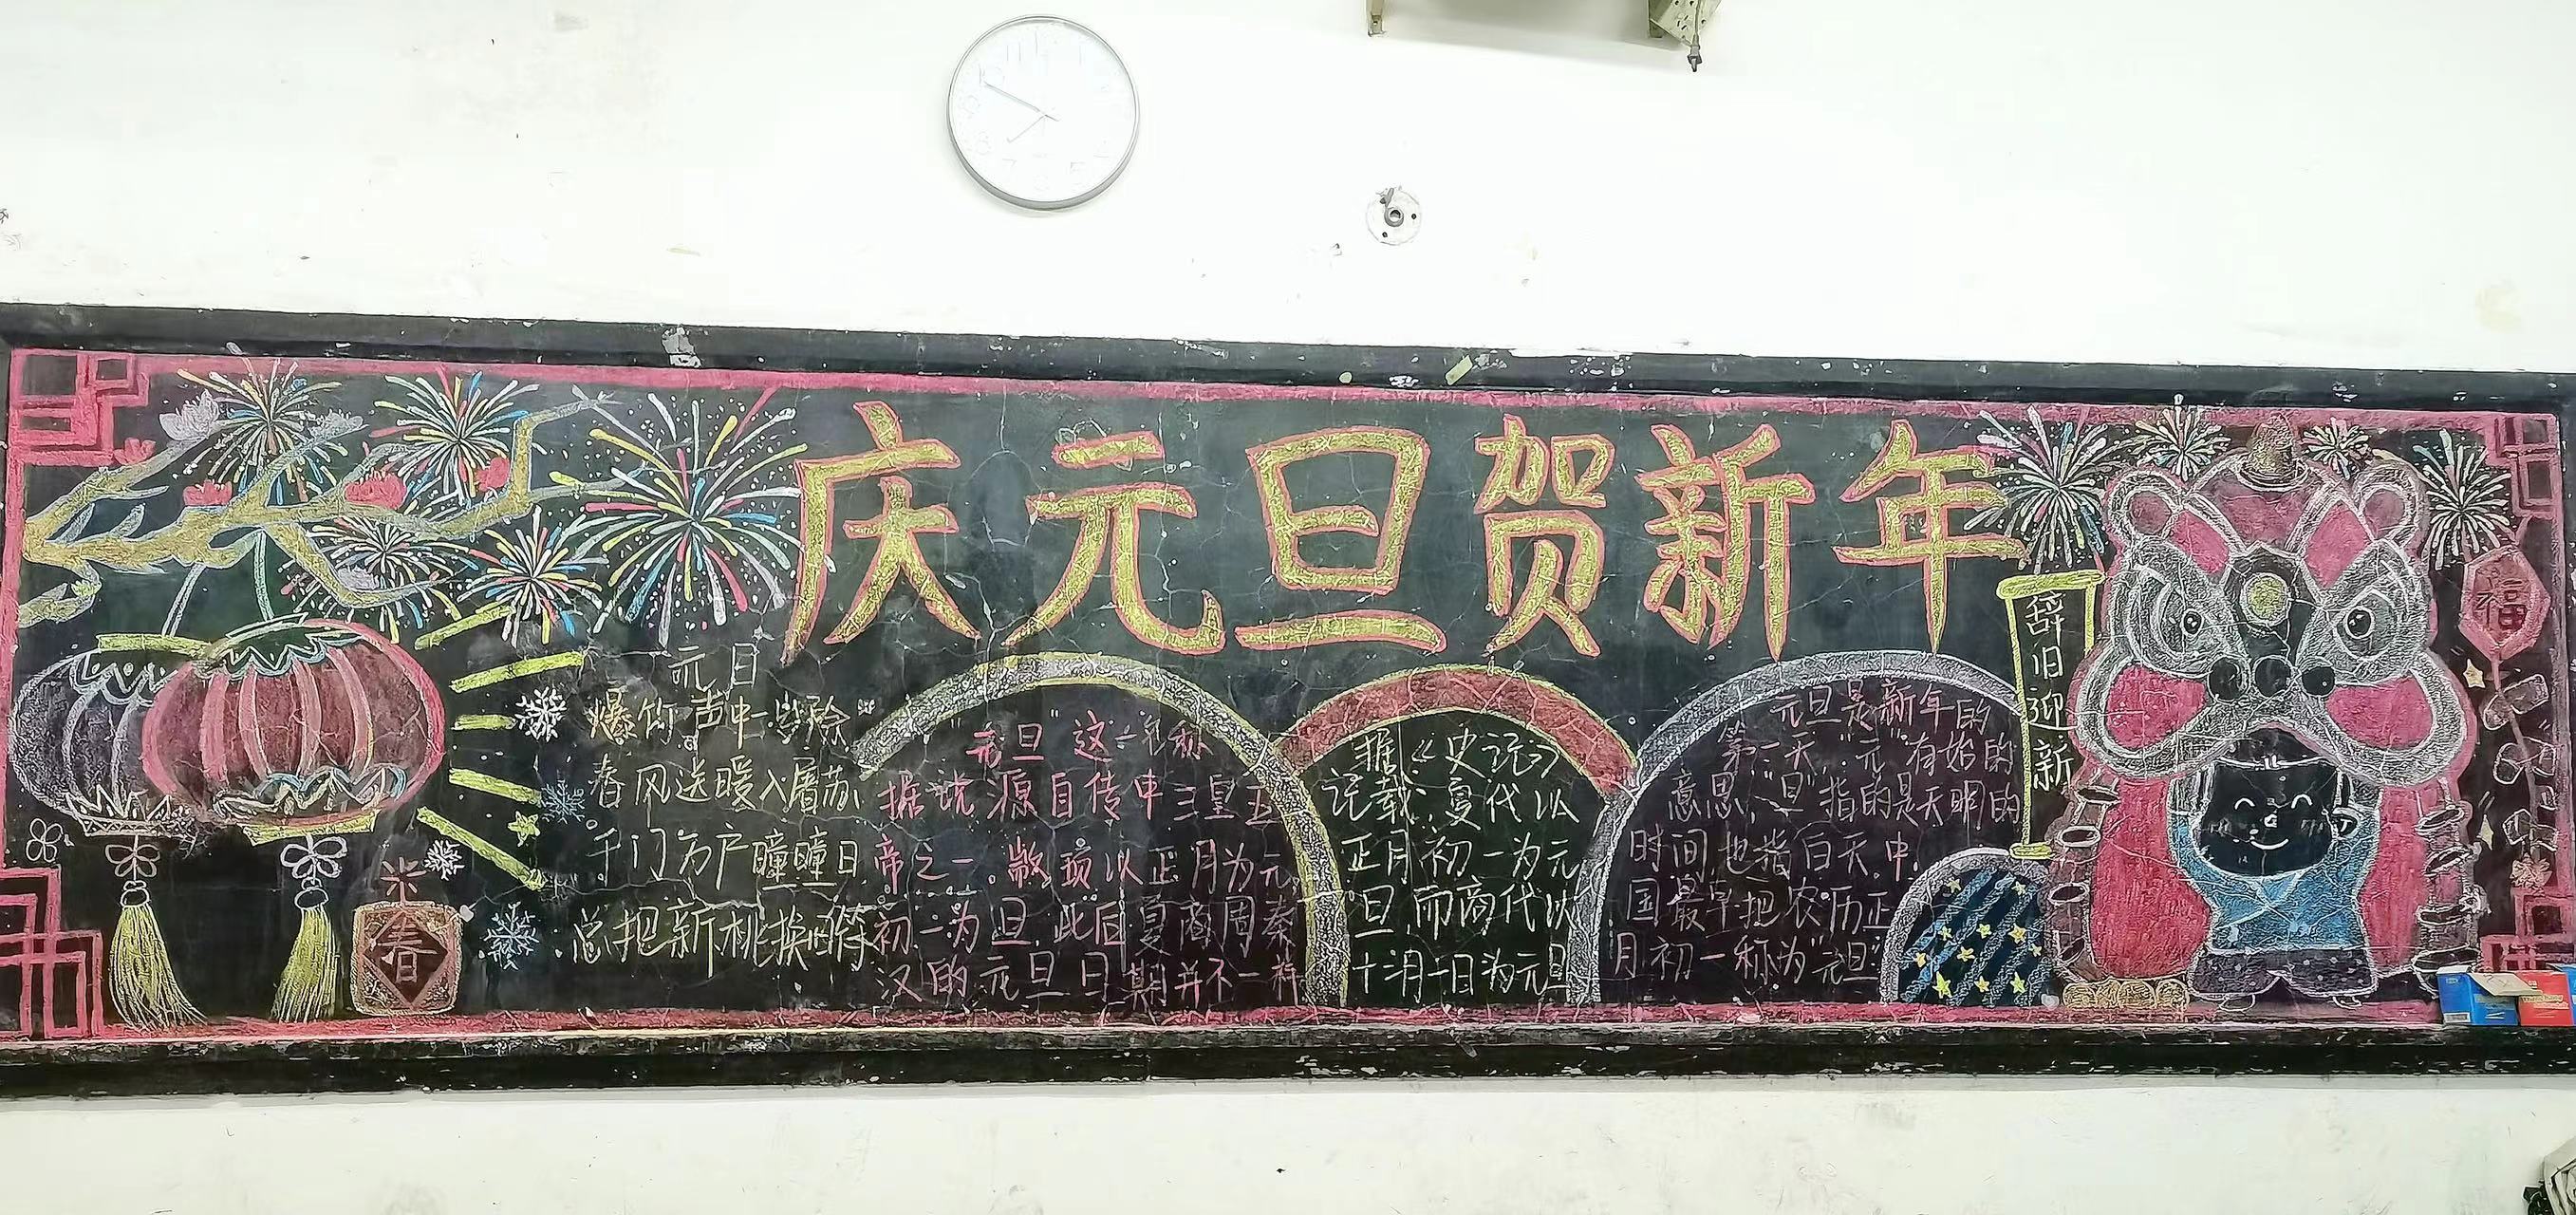 庆元旦贺新年
元日
爆竹声中一岁除
春风送暖入屠苏
千门万户曈曈日
总把新桃换旧符
春
"元旦"这一名称
据说源自传中三皇五
帝之一.颛顼以正月为元.
初一为旦.此后夏商周秦
汉的元旦日期并不一样
据《史记》
记载,夏代以
正月初一为元
旦,而商代以
十二月一日为元旦
元旦是新年的
第一天"元"有始的
意思,"旦"指的是天明的
时间也指白天.中
国最早把农历正
月初一称为"元旦"
辞旧迎新
福